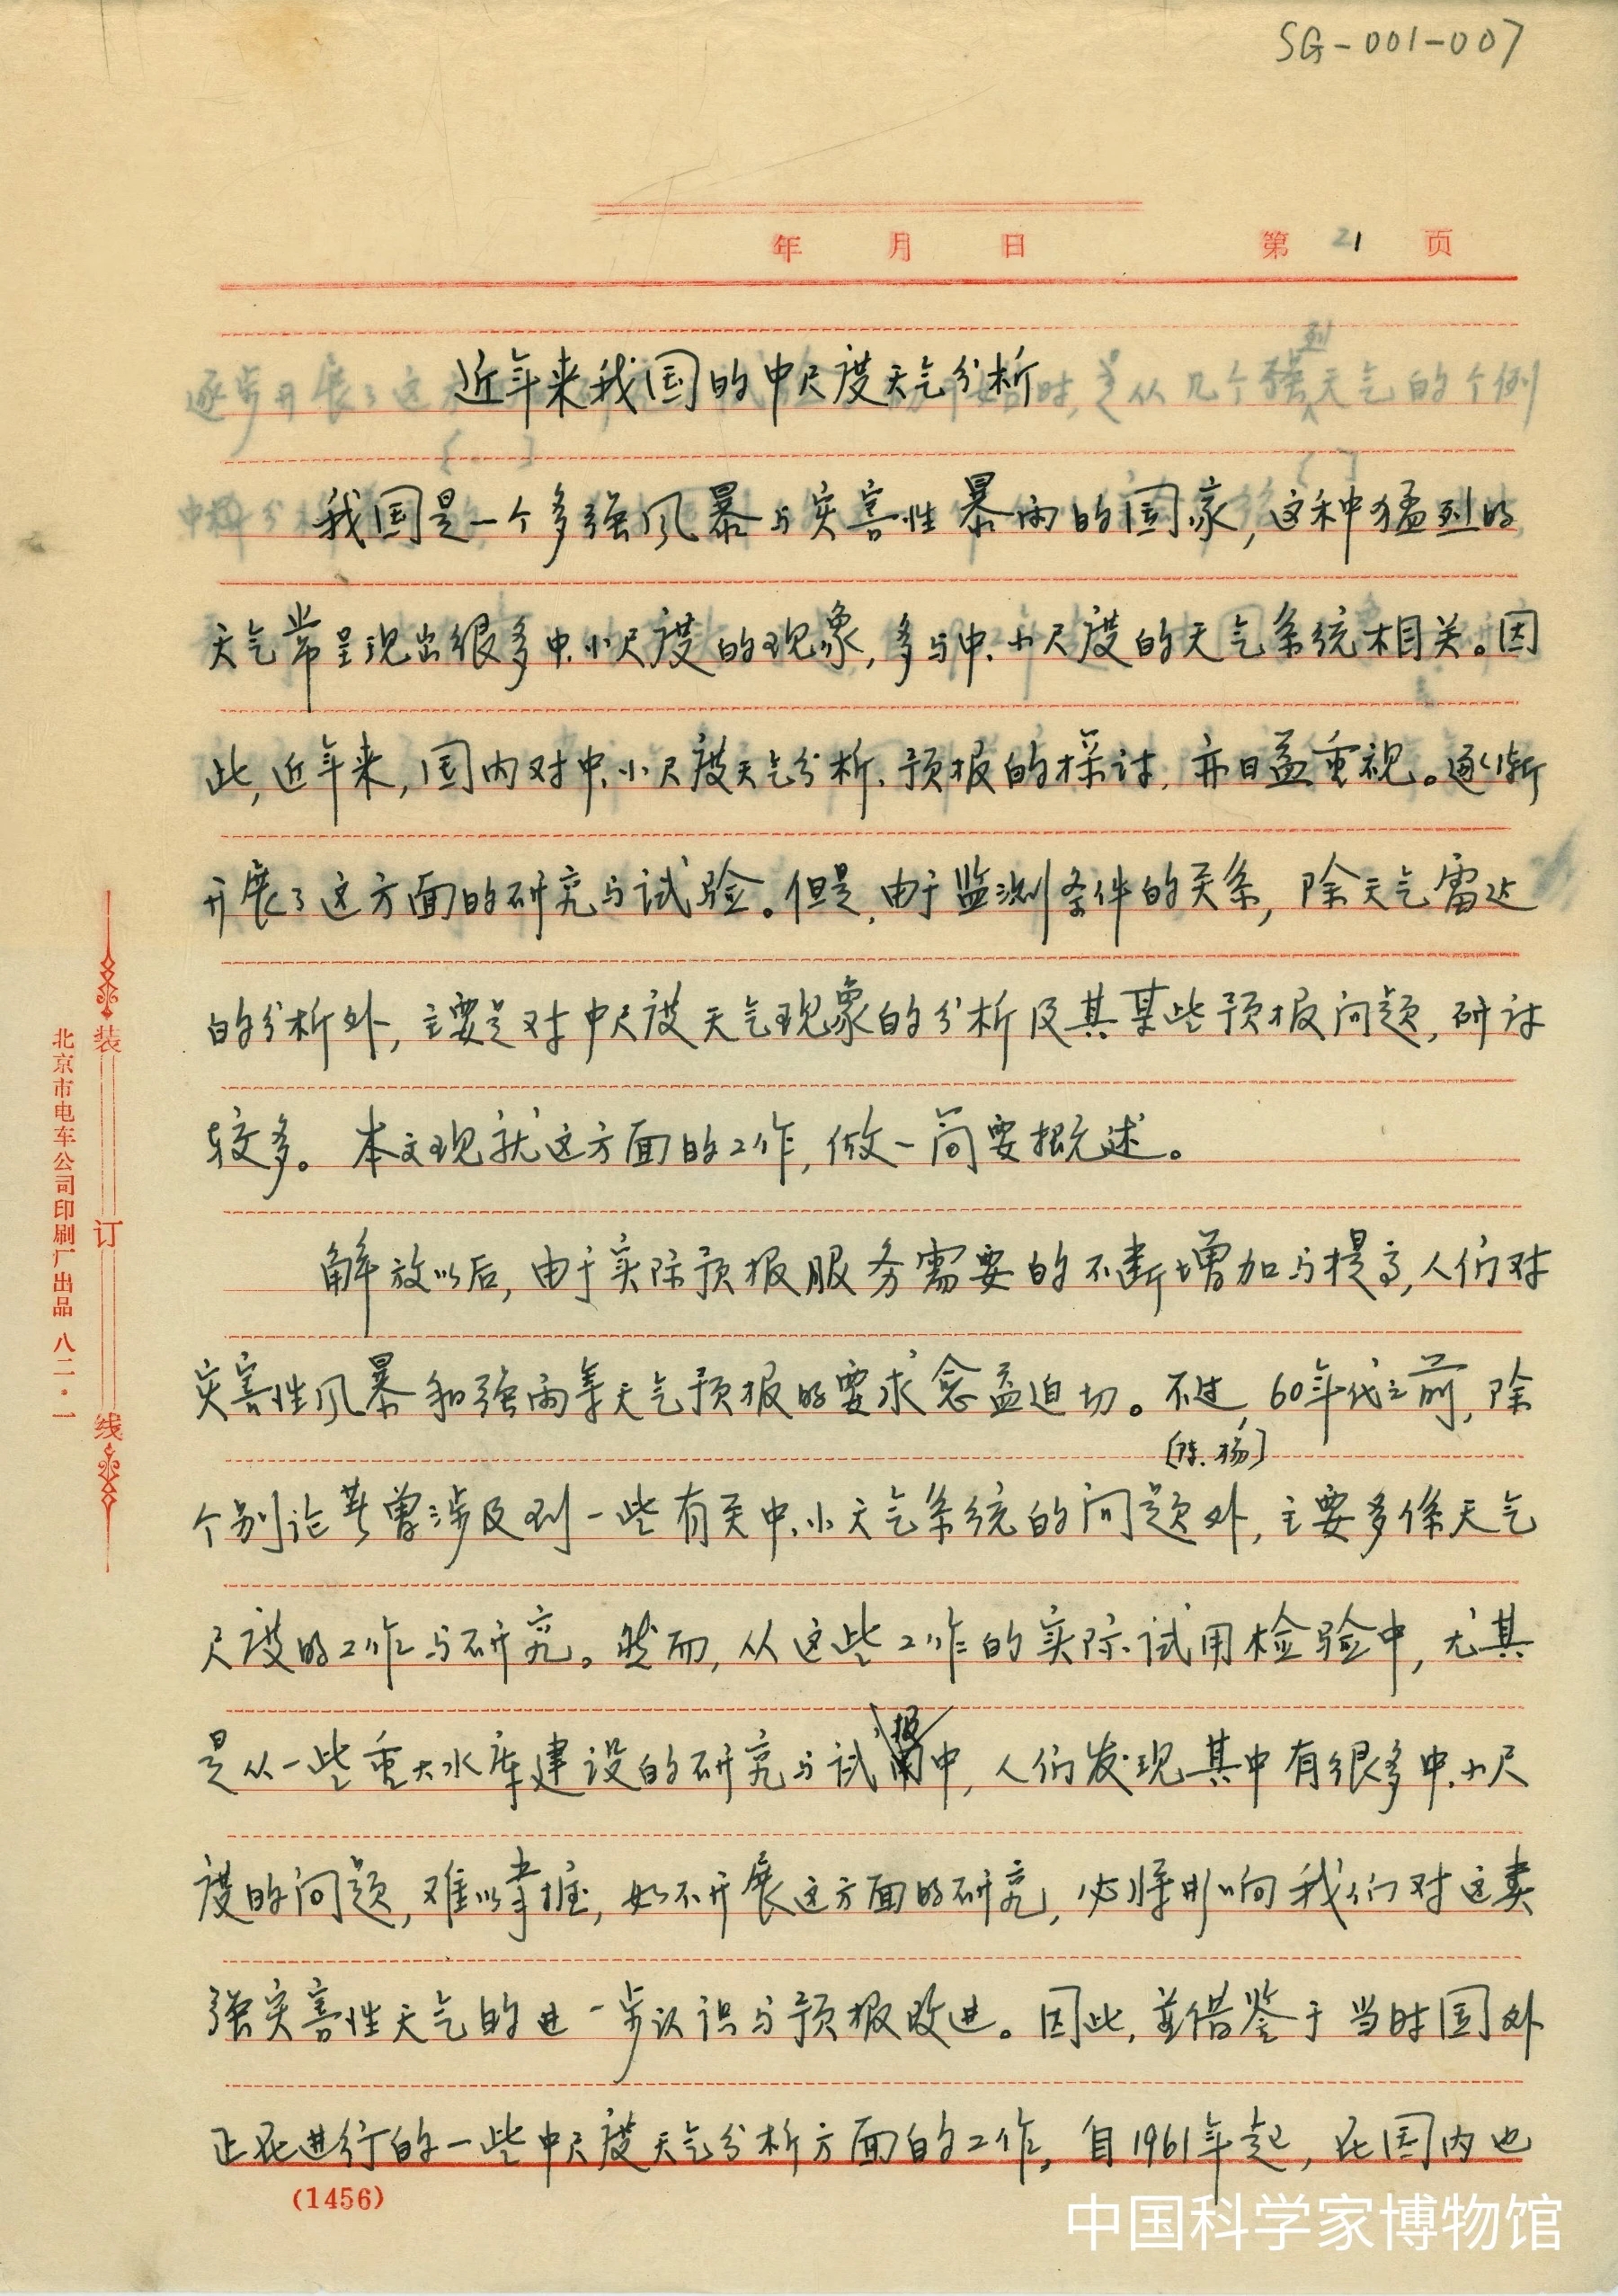 SG-001-007
年 月 日 第 21 页
近年来我国的中尺度天气分析
我国是一个多强风暴与灾害性暴雨的国家,这种猛烈的
天气常呈现出很多中、小尺度的现象,多与中、小尺度的天气系统相关。因
此,近年来,国内对中、小尺度天气分析、预报的探讨,亦日益重视。逐渐
开展了这方面的研究与试验。但是,由于监测条件的关系,除天气雷达
的分析外,主要是对中尺度天气现象的分析及其某些预报问题,研讨
较多。本文现就这方面的工作,做一简要概述。
解放以后,由于实际预报服务需要的不断增加与提高,人们对
灾害性风暴和强雨等天气预报的要求愈益迫切。不过,60年代之前,除
[陈、杨]
个别论著曾涉及到一些有关中、小天气系统的问题外,主要多系天气
尺度的工作与研究。然而,从这些工作的实际试用检验中,尤其
报
是从一些重大水库建设的研究与试用中,人们发现其中有很多中、小尺
度的问题,难以掌握,如不开展这方面的研究,必将影响我们对这类
强灾害性天气的进一步认识与预报改进。因此,并借鉴于当时国外
正在进行的一些中尺度天气分析方面的工作。自1961年起,在国内也
(1456)
装订线
北京市电车公司印刷厂出品 八二·一
中国科学家博物馆